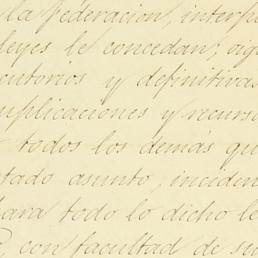 la federacion, interp
leyes le concedan; oig
cutorios y definitivas
uplicaciones y recurso
todos los demás que
tado asunto, inciden
para todo lo dicho le
con facultad de su